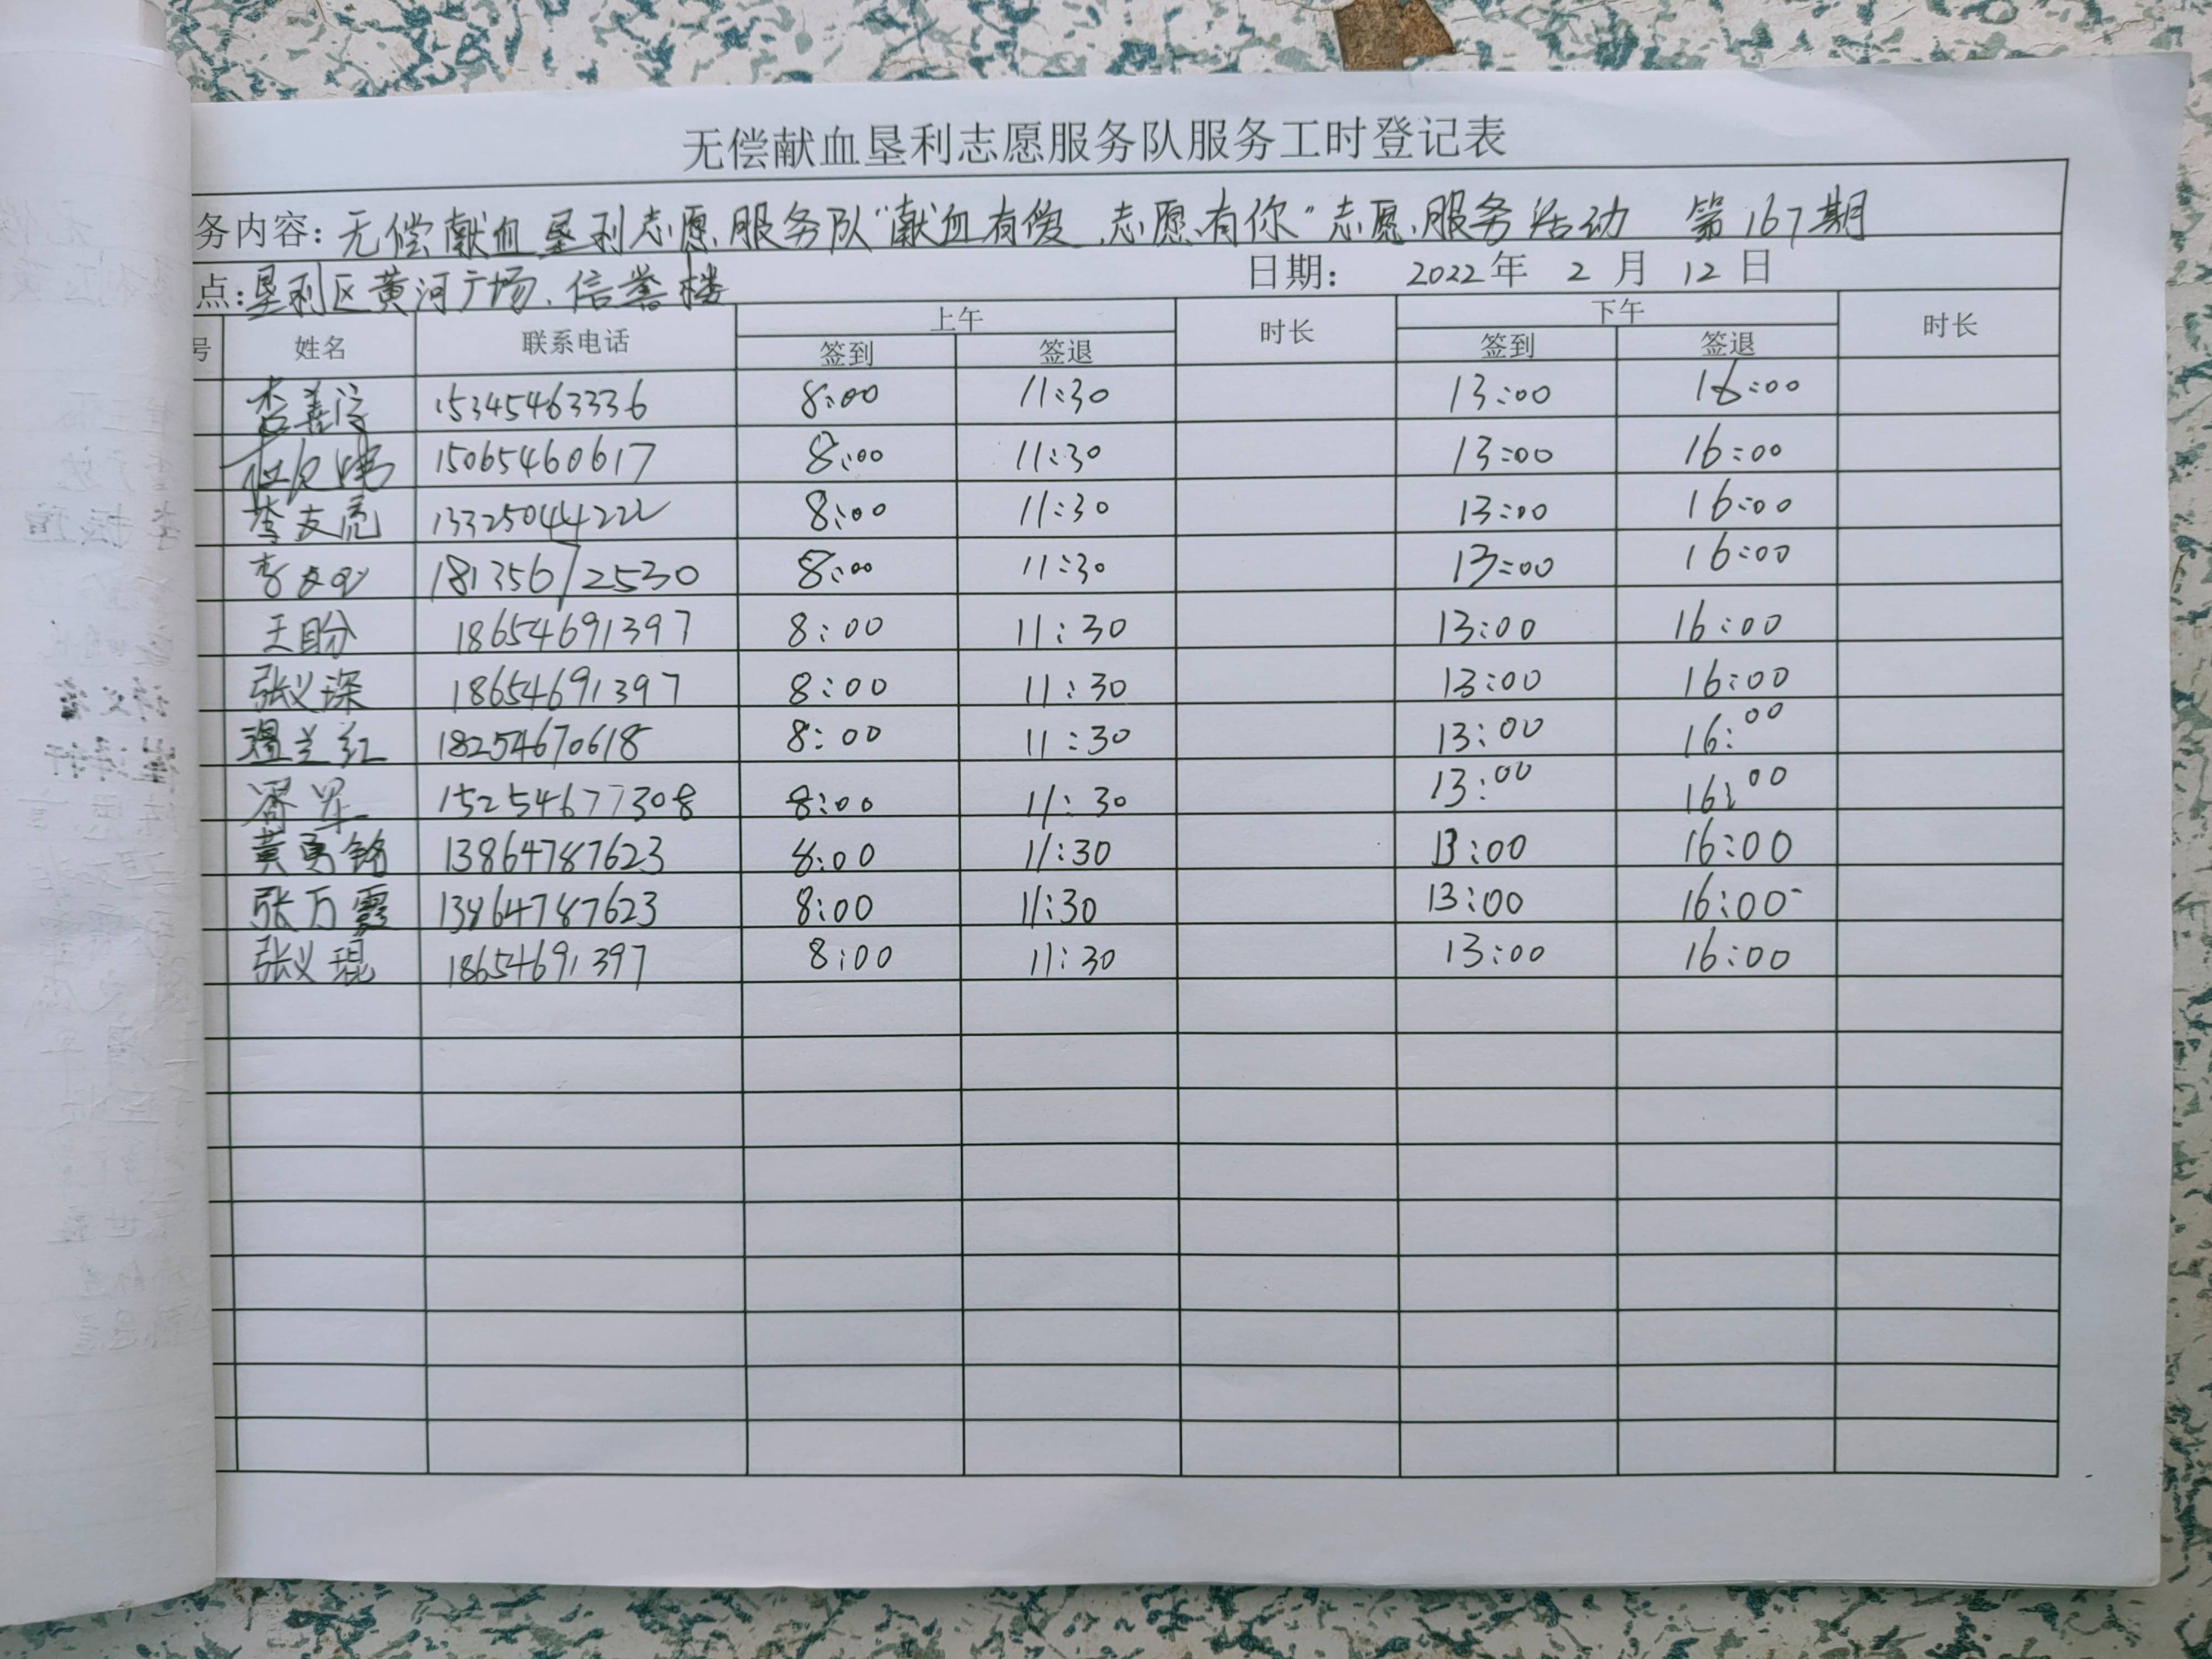 无偿献血垦利志愿服务队服务工时登记表
务内容：无偿献血垦利志愿服务队“献血有爱、志愿有你”志愿服务活动 第167期
点：垦利区黄河广场、信誉楼 日期： 2022年 2月 12日
号 姓名 联系电话 上午 时长 下午 时长
签到 签退 签到 签退
15345463336 8:00 11:30 13:00 16:00
15065460617 8:00 11:30 13:00 16:00
李友亮 13325044222 8:00 11:30 13:00 16:00
18135612530 8:00 11:30 13:00 16:00
王盼 18654691397 8:00 11:30 13:00 16:00
张义琛 18654691397 8:00 11:30 13:00 16:00
温兰红 18254670618 8:00 11:30 13:00 16:00
15254677308 8:00 11:30 13:00 16:00
黄勇铭 13864787623 8:00 11:30 13:00 16:00
张万霞 13864787623 8:00 11:30 13:00 16:00
张义琨 18654691397 8:00 11:30 13:00 16:00